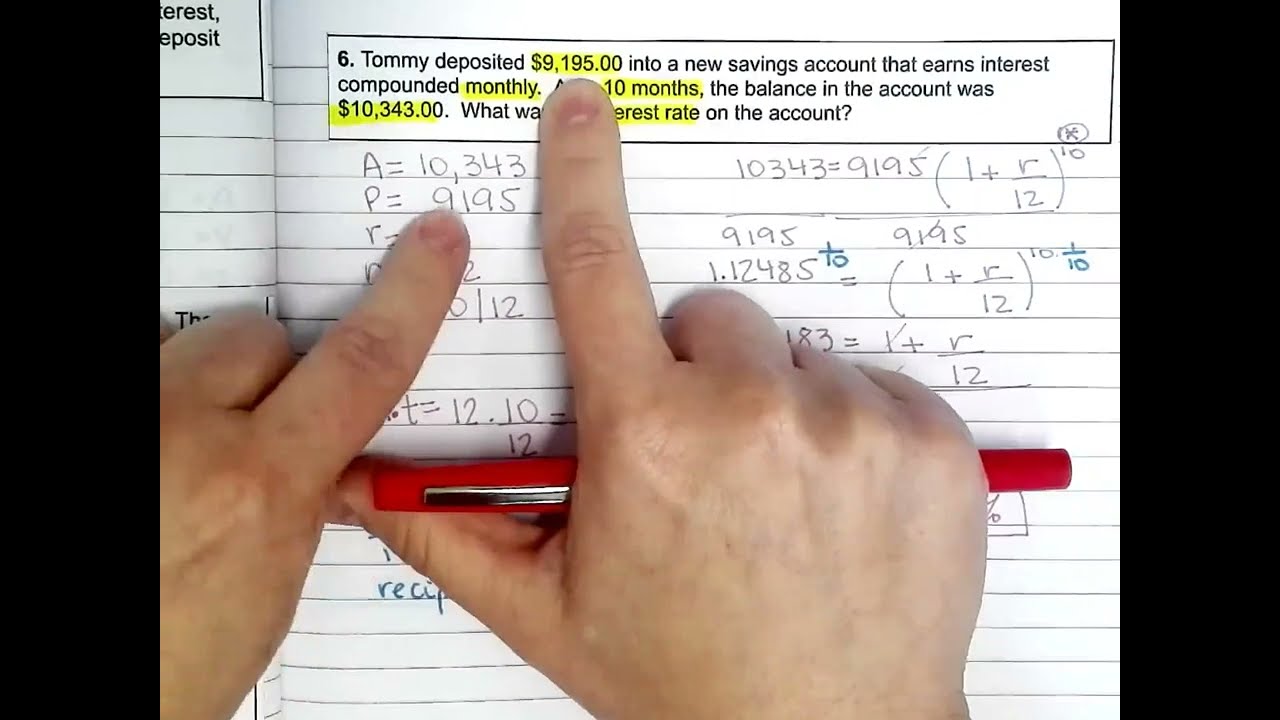 terest,
eposit
6. Tommy deposited $9,195.00 into a new savings account that earns interest
compounded monthly. 10 months, the balance in the account was
$10,343.00. What was erest rate on the account?
A = 10,343
P = 9195
r =
2
0/12
.t = 12 . 10 =
12
recip
10343 = 9195 (1 + r/12)^10
9195 9195
1.12485^1/10 = (1 + r/12)^10 . 1/10
183 = 1 + r/12
%